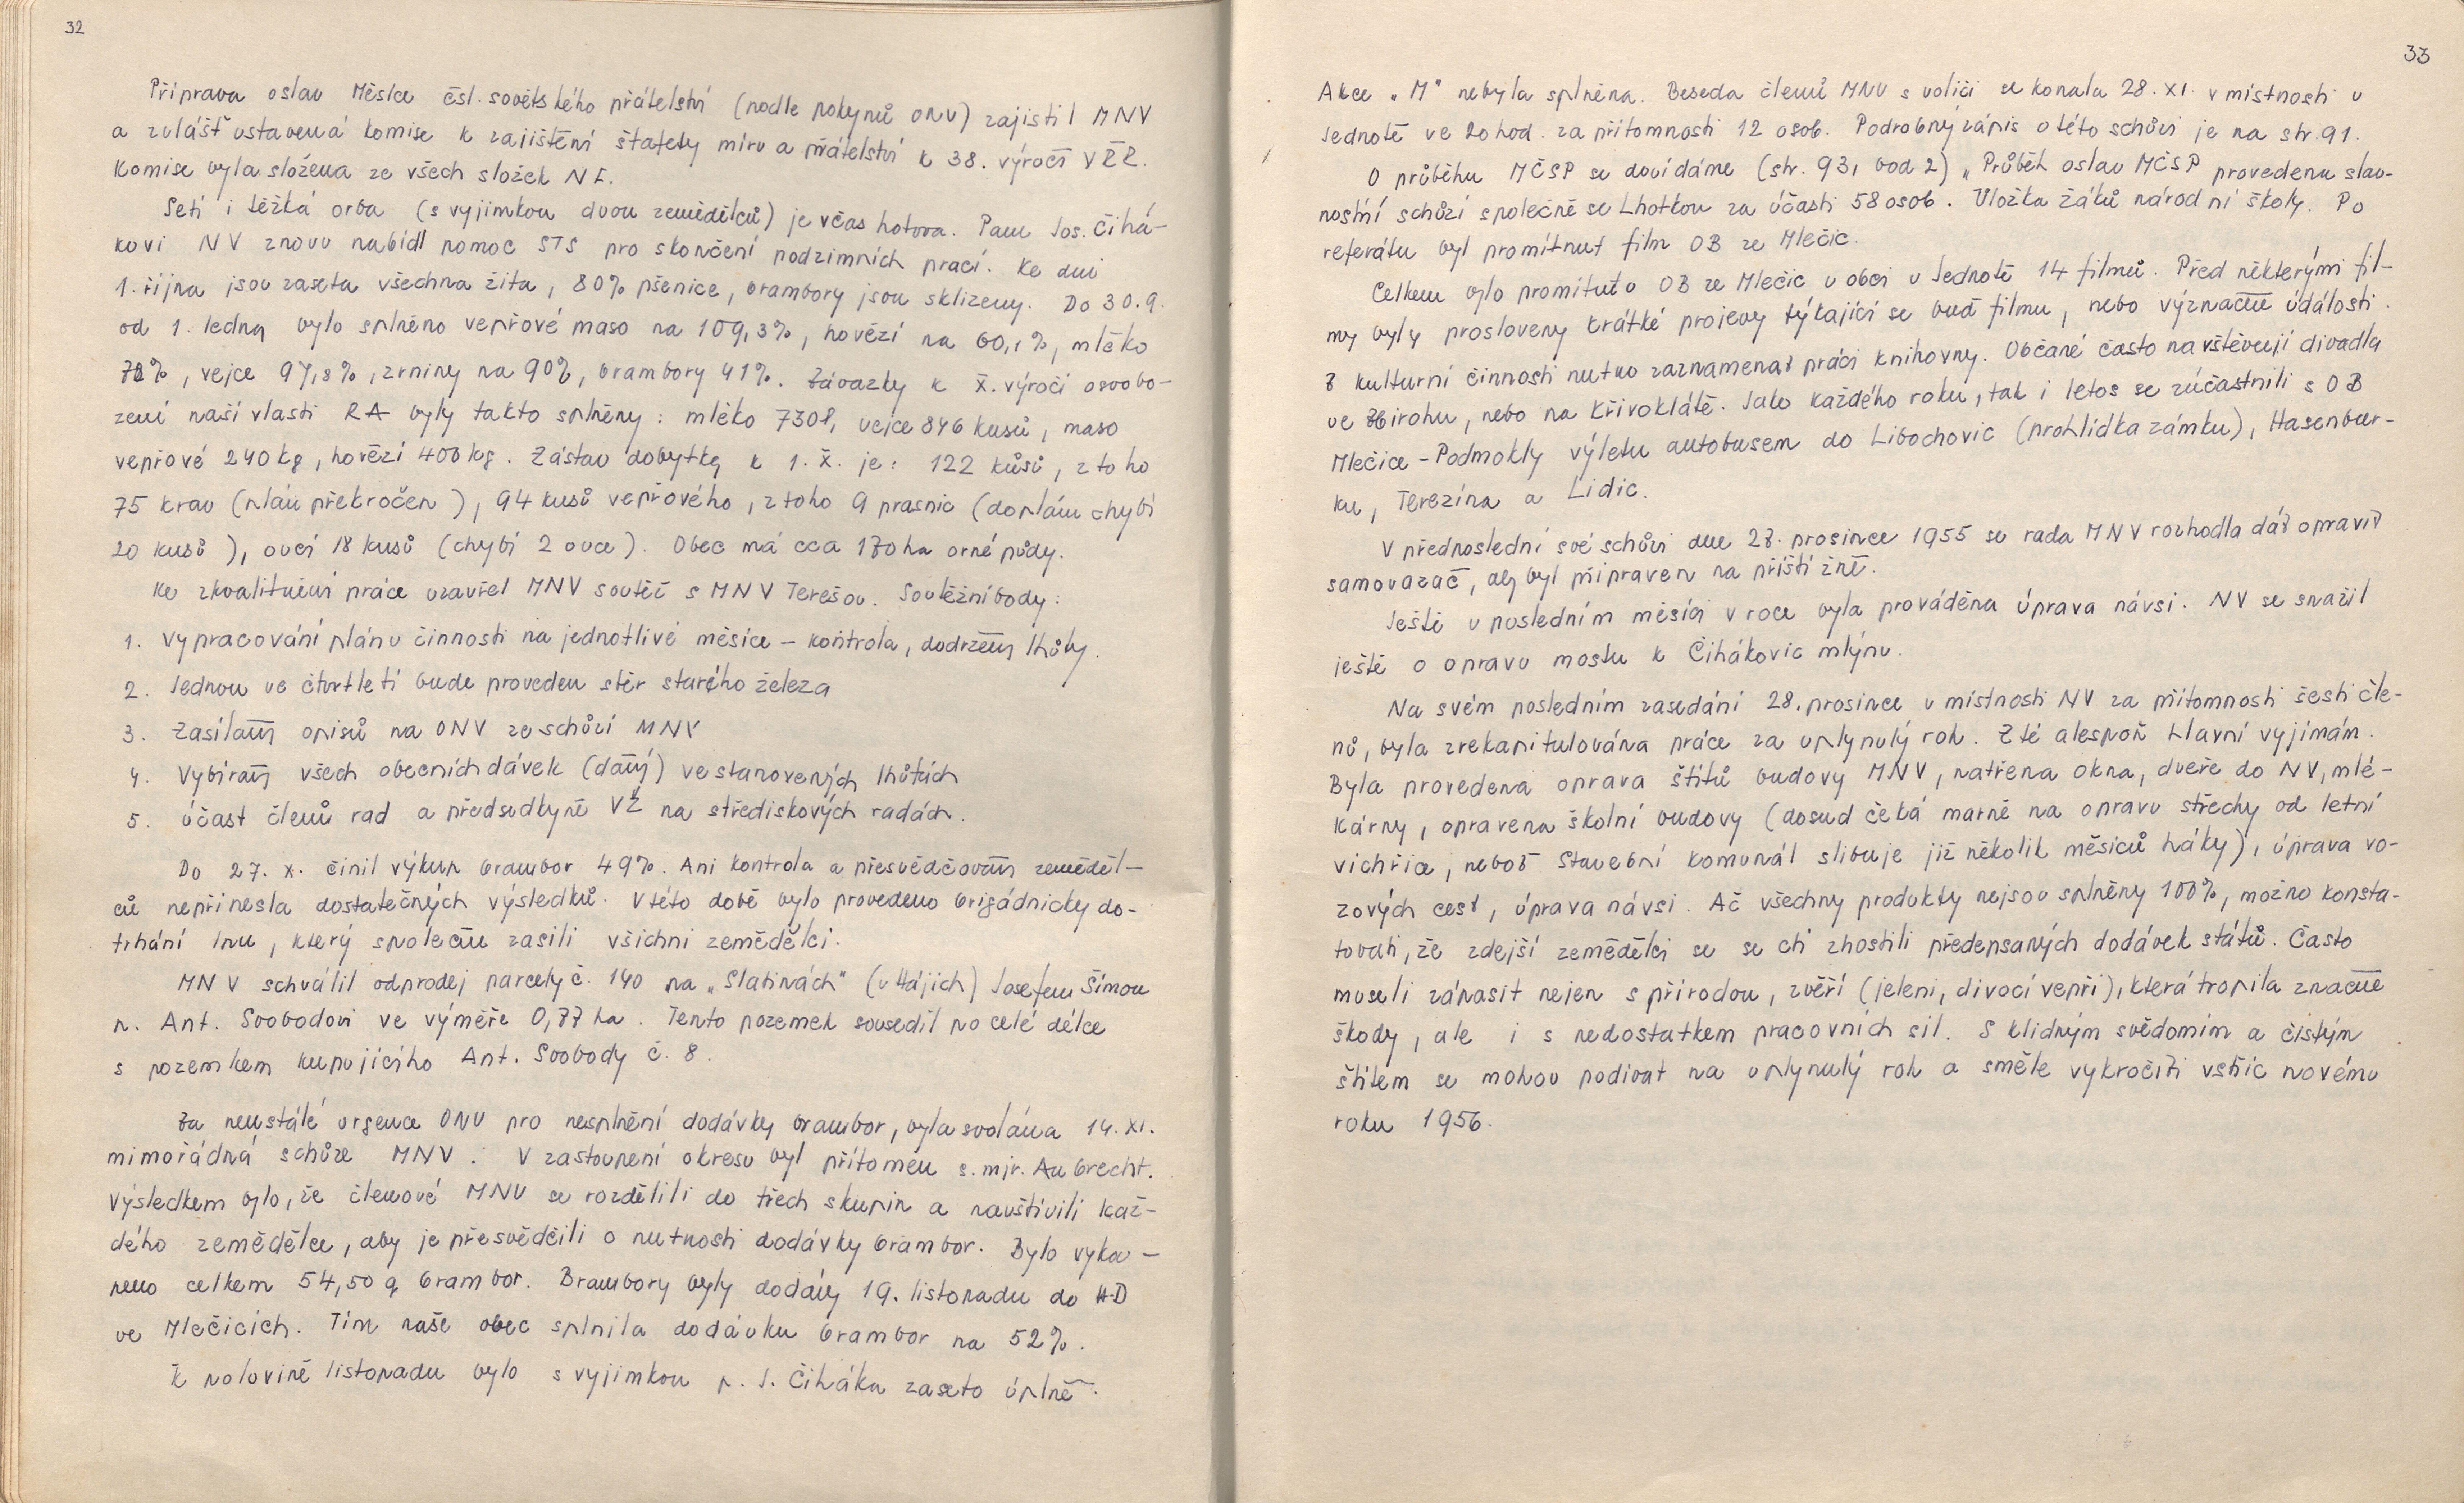 32
Příprava oslav Měsíce čsl. sovětského přátelství (podle pokynů ONV) zajistil MNV
a zvlášť ustavená komise k zajištění štafety míru a přátelství k 38. výročí VŘR.
Komise byla složena ze všech složek NF.
Setí i těžká orba (s vyjimkou dvou zemědělců) je včas hotova. Panu Jos. Čihá-
kovi NV znovu nabídl pomoc STS pro skončení podzimních prací. Ke dni
1. října jsou zaseta všechna žita, 80% pšenice, brambory jsou sklizeny. Do 30.9.
od 1. ledna bylo splněno vepřové maso na 109,3%, hovězí na 60,1%, mléko
78%, vejce 97,8%, zrniny na 90%, brambory 41%. Závazky k X. výročí osvobo-
zení naší vlasti RA byly takto splněny: mléko 730 l, vejce 846 kusů, maso
vepřové 240 kg, hovězí 400 kg. Zástav dobytka k 1. X. je: 122 kůsů, z toho
75 krav (plán překročen), 94 kusů vepřového, z toho 9 prasnic (do plánu chybí
20 kusů), ovcí 18 kusů (chybí 2 ovce). Obec má cca 170 ha orné půdy.
Ke zkvalitnění práce uzavřel MNV soutěž s MNV Terešov. Soutěžní body:
1. Vypracování plánu činnosti na jednotlivé měsíce – kontrola, dodržení lhůty.
2. Jednou ve čtvrtletí bude proveden sběr starého železa
3. Zasílání opisů na ONV ze schůzí MNV
4. Vybírání všech obecních dávek (daní) ve stanovených lhůtách
5. Účast členů rad a předsedkyně VŽ na střediskových radách.
Do 27. X. činil výkup brambor 49%. Ani kontrola a přesvědčování zeměděl-
ců nepřinesla dostatečných výsledků. V této době bylo provedeno brigádnicky do-
trhání lnu, který společně zasili všichni zemědělci.
MNV schválil odprodej parcely č. 140 na „Slatinách" (v Hájích) Josefem Šímou
p. Ant. Svobodovi ve výměře 0,77 ha. Tento pozemek sousedil po celé délce
s pozemkem kupujícího Ant. Svobody č. 8.
Za neustálé urgence ONV pro nesplnění dodávky brambor, byla svolána 14. XI.
mimořádná schůze MNV. V zastoupení okresu byl přítomen s. mjr. Aubrecht.
Výsledkem bylo, že členové MNV se rozdělili do třech skupin a navštívili kaž-
dého zemědělce, aby je přesvědčili o nutnosti dodávky brambor. Bylo vykou-
peno celkem 54,50 q brambor. Brambory byly dodány 19. listopadu do HD
ve Mlečicích. Tím naše obec splnila dodávku brambor na 52%.
K polovině listopadu bylo s vyjimkou p. J. Čiháka zaseto úplně.
33
Akce „M" nebyla splněna. Beseda členů MNV s voliči se konala 28. XI. v místnosti v
Jednotě ve 20 hod. za přítomnosti 12 osob. Podrobný zápis o této schůzi je na str. 91.
O průběhu MČSP se dovídáme (str. 93, bod 2) „Průběh oslav MČSP provedenu slav-
nostní schůzí společně se Lhotkou za účasti 58 osob. Vložka žáků národní školy. Po
referátu byl promítnut film OB ze Mlečic.
Celkem bylo promítnuto OB ze Mlečic v obci v Jednotě 14 filmů. Před některými fil-
my byly prosloveny krátké projevy týkající se buď filmu, nebo význačné události.
Z kulturní činnosti nutno zaznamenat práci knihovny. Občané často navštěvují divadla
ve Zbirohu, nebo na Křivoklátě. Jako každého roku, tak i letos se zúčastnili s OB
Mlečice – Podmokly výletu autobusem do Libochovic (prohlídka zámku), Hasenbur-
ku, Terezína a Lidic.
V předposlední své schůzi dne 27. prosince 1955 se rada MNV rozhodla dát opravit
samovazač, aby byl připraven na příští žně.
Ještě v posledním měsíci v roce byla prováděna úprava návsi. NV se snažil
ještě o opravu mostu k Čihákovic mlýnu.
Na svém posledním zasedání 28. prosince v místnosti NV za přítomnosti šesti čle-
nů, byla zrekapitulována práce za uplynulý rok. Z té alespoň hlavní vyjímám.
Byla provedena oprava štítů budovy MNV, natřena okna, dveře do NV, mlé-
kárny, opravena školní budovy (dosud čeká marně na opravu střechy od letní
vichřice, neboť Stavební komunál slibuje již několik měsíců háky), úprava vo-
zových cest, úprava návsi. Ač všechny produkty nejsou splněny 100%, možno konsta-
tovati, že zdejší zemědělci se se ctí zhostili předepsaných dodávek státu. Často
museli zápasit nejen s přírodou, zvěří (jeleni, divocí vepři), která tropila značné
škody, ale i s nedostatkem pracovních sil. S klidným svědomím a čistým
štítem se mohou podívat na uplynulý rok a směle vykročiti vstříc novému
roku 1956.